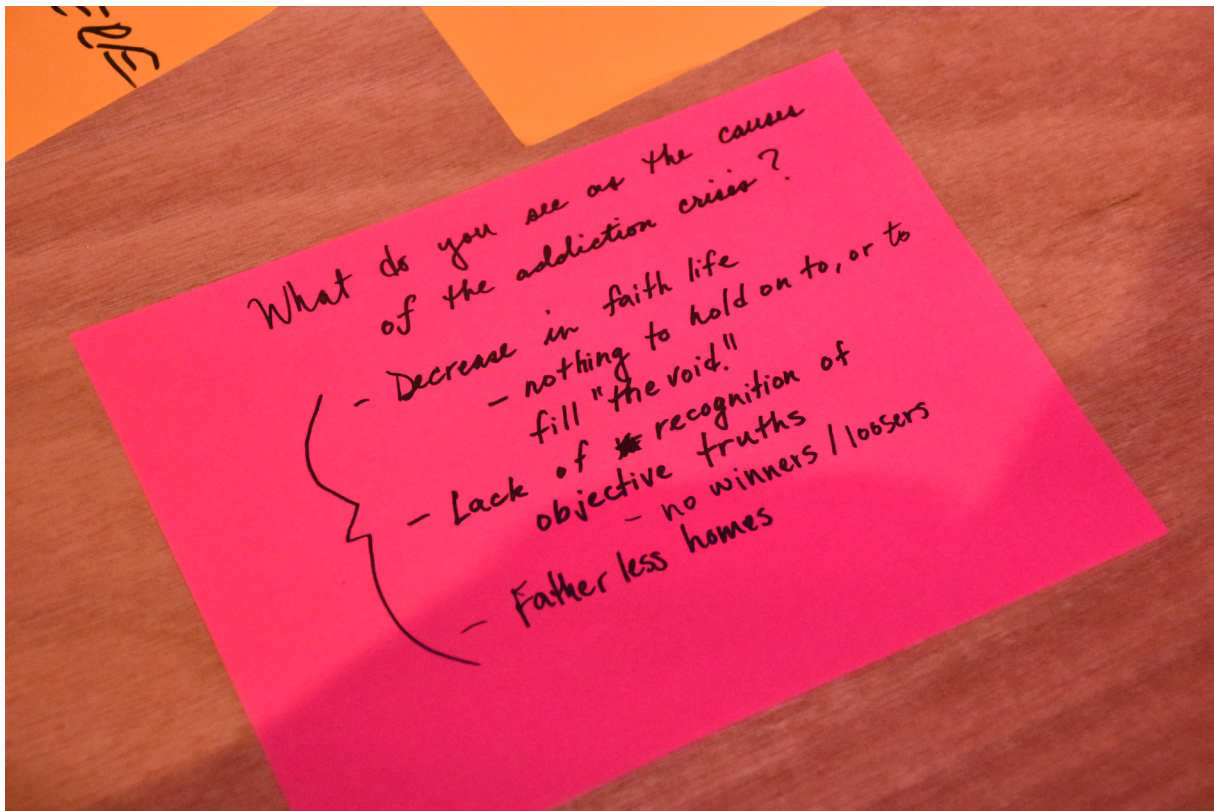 What do you see as the causes
of the addiction crisis?
- Decrease in faith life
- nothing to hold on to, or to
fill "the void."
- Lack of recognition of
objective truths
- no winners / loosers
- Father less homes